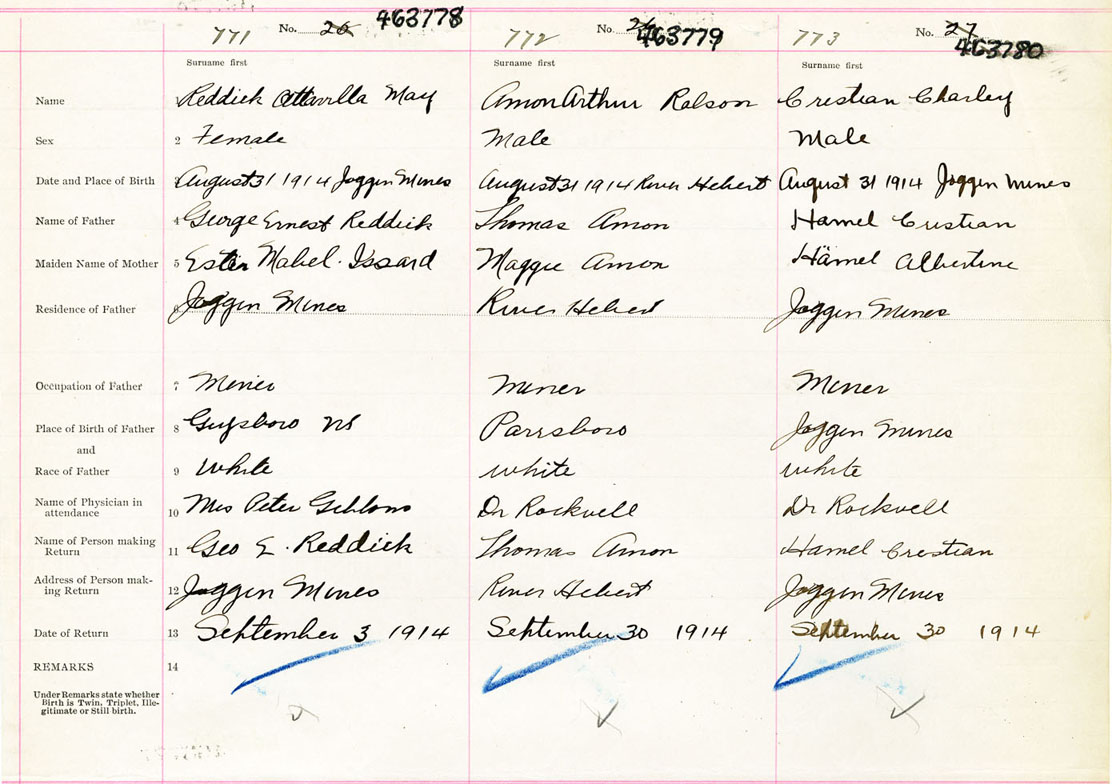 771 No. 26 463778 772 No. 463779 773 No. 27 463780
Surname first Surname first Surname first
Name 1 Reddick Ottavilla May Amon Arthur Rolson Cristian Charley
Sex 2 Female Male Male
Date and Place of Birth 3 August 31 1914 Joggin Mines August 31 1914 River Hebert August 31 1914 Joggin Mines
Name of Father 4 George Ernest Reddick Thomas Amon Hamel Cristian
Maiden Name of Mother 5 Ester Mabel Issard Maggie Amon Hämel Albertine
Residence of Father 6 Joggin Mines River Hebert Joggin Mines
Occupation of Father 7 Miner Miner Miner
Place of Birth of Father 8 Guysboro NS Parrsboro Joggin Mines
and
Race of Father 9 White White White
Name of Physician in
attendance 10 Mrs Peter Gibbons Dr Rockwell Dr Rockwell
Name of Person making
Return 11 Geo E. Reddick Thomas Amon Hamel Crestian
Address of Person mak-
ing Return 12 Joggin Mines River Hebert Joggin Mines
Date of Return 13 September 3 1914 September 30 1914 September 30 1914
REMARKS 14
Under Remarks state whether
Birth is Twin, Triplet, Ille-
gitimate or Still birth.